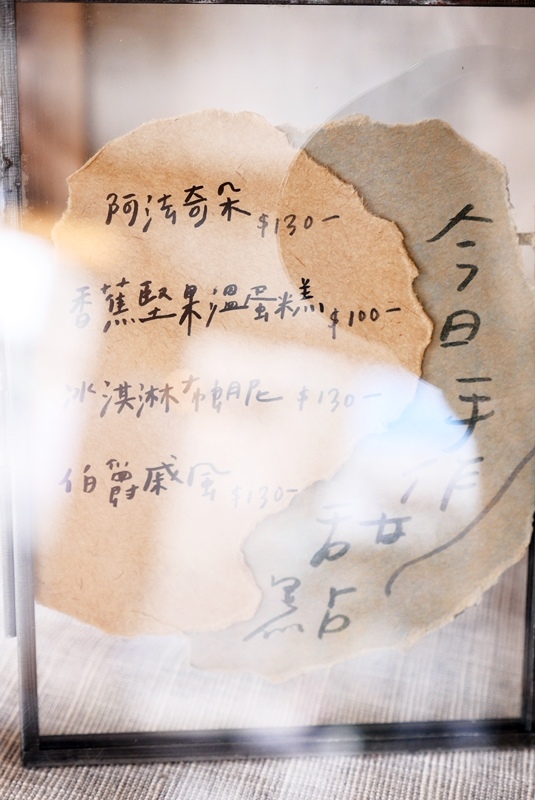 今日手作甜點
阿法奇朵 $130-
香蕉堅果溫蛋糕 $100-
冰淇淋布朗尼 $130-
伯爵戚風 $130-